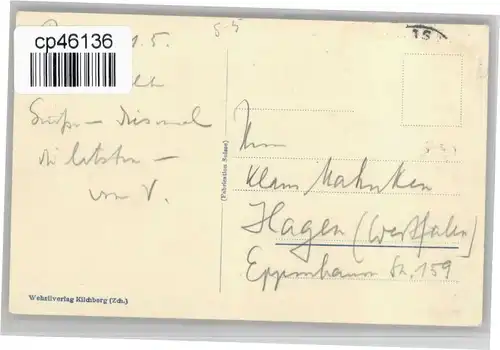 cp46136
1.5.
15
Grüße – diesmal
die letzten –
von V.
(Fabrication Suisse)
Herrn
Klaus Mahnken
Hagen (Westfalen)
Eppenhauser Str. 159
Wehrliverlag Kilchberg (Zch.)